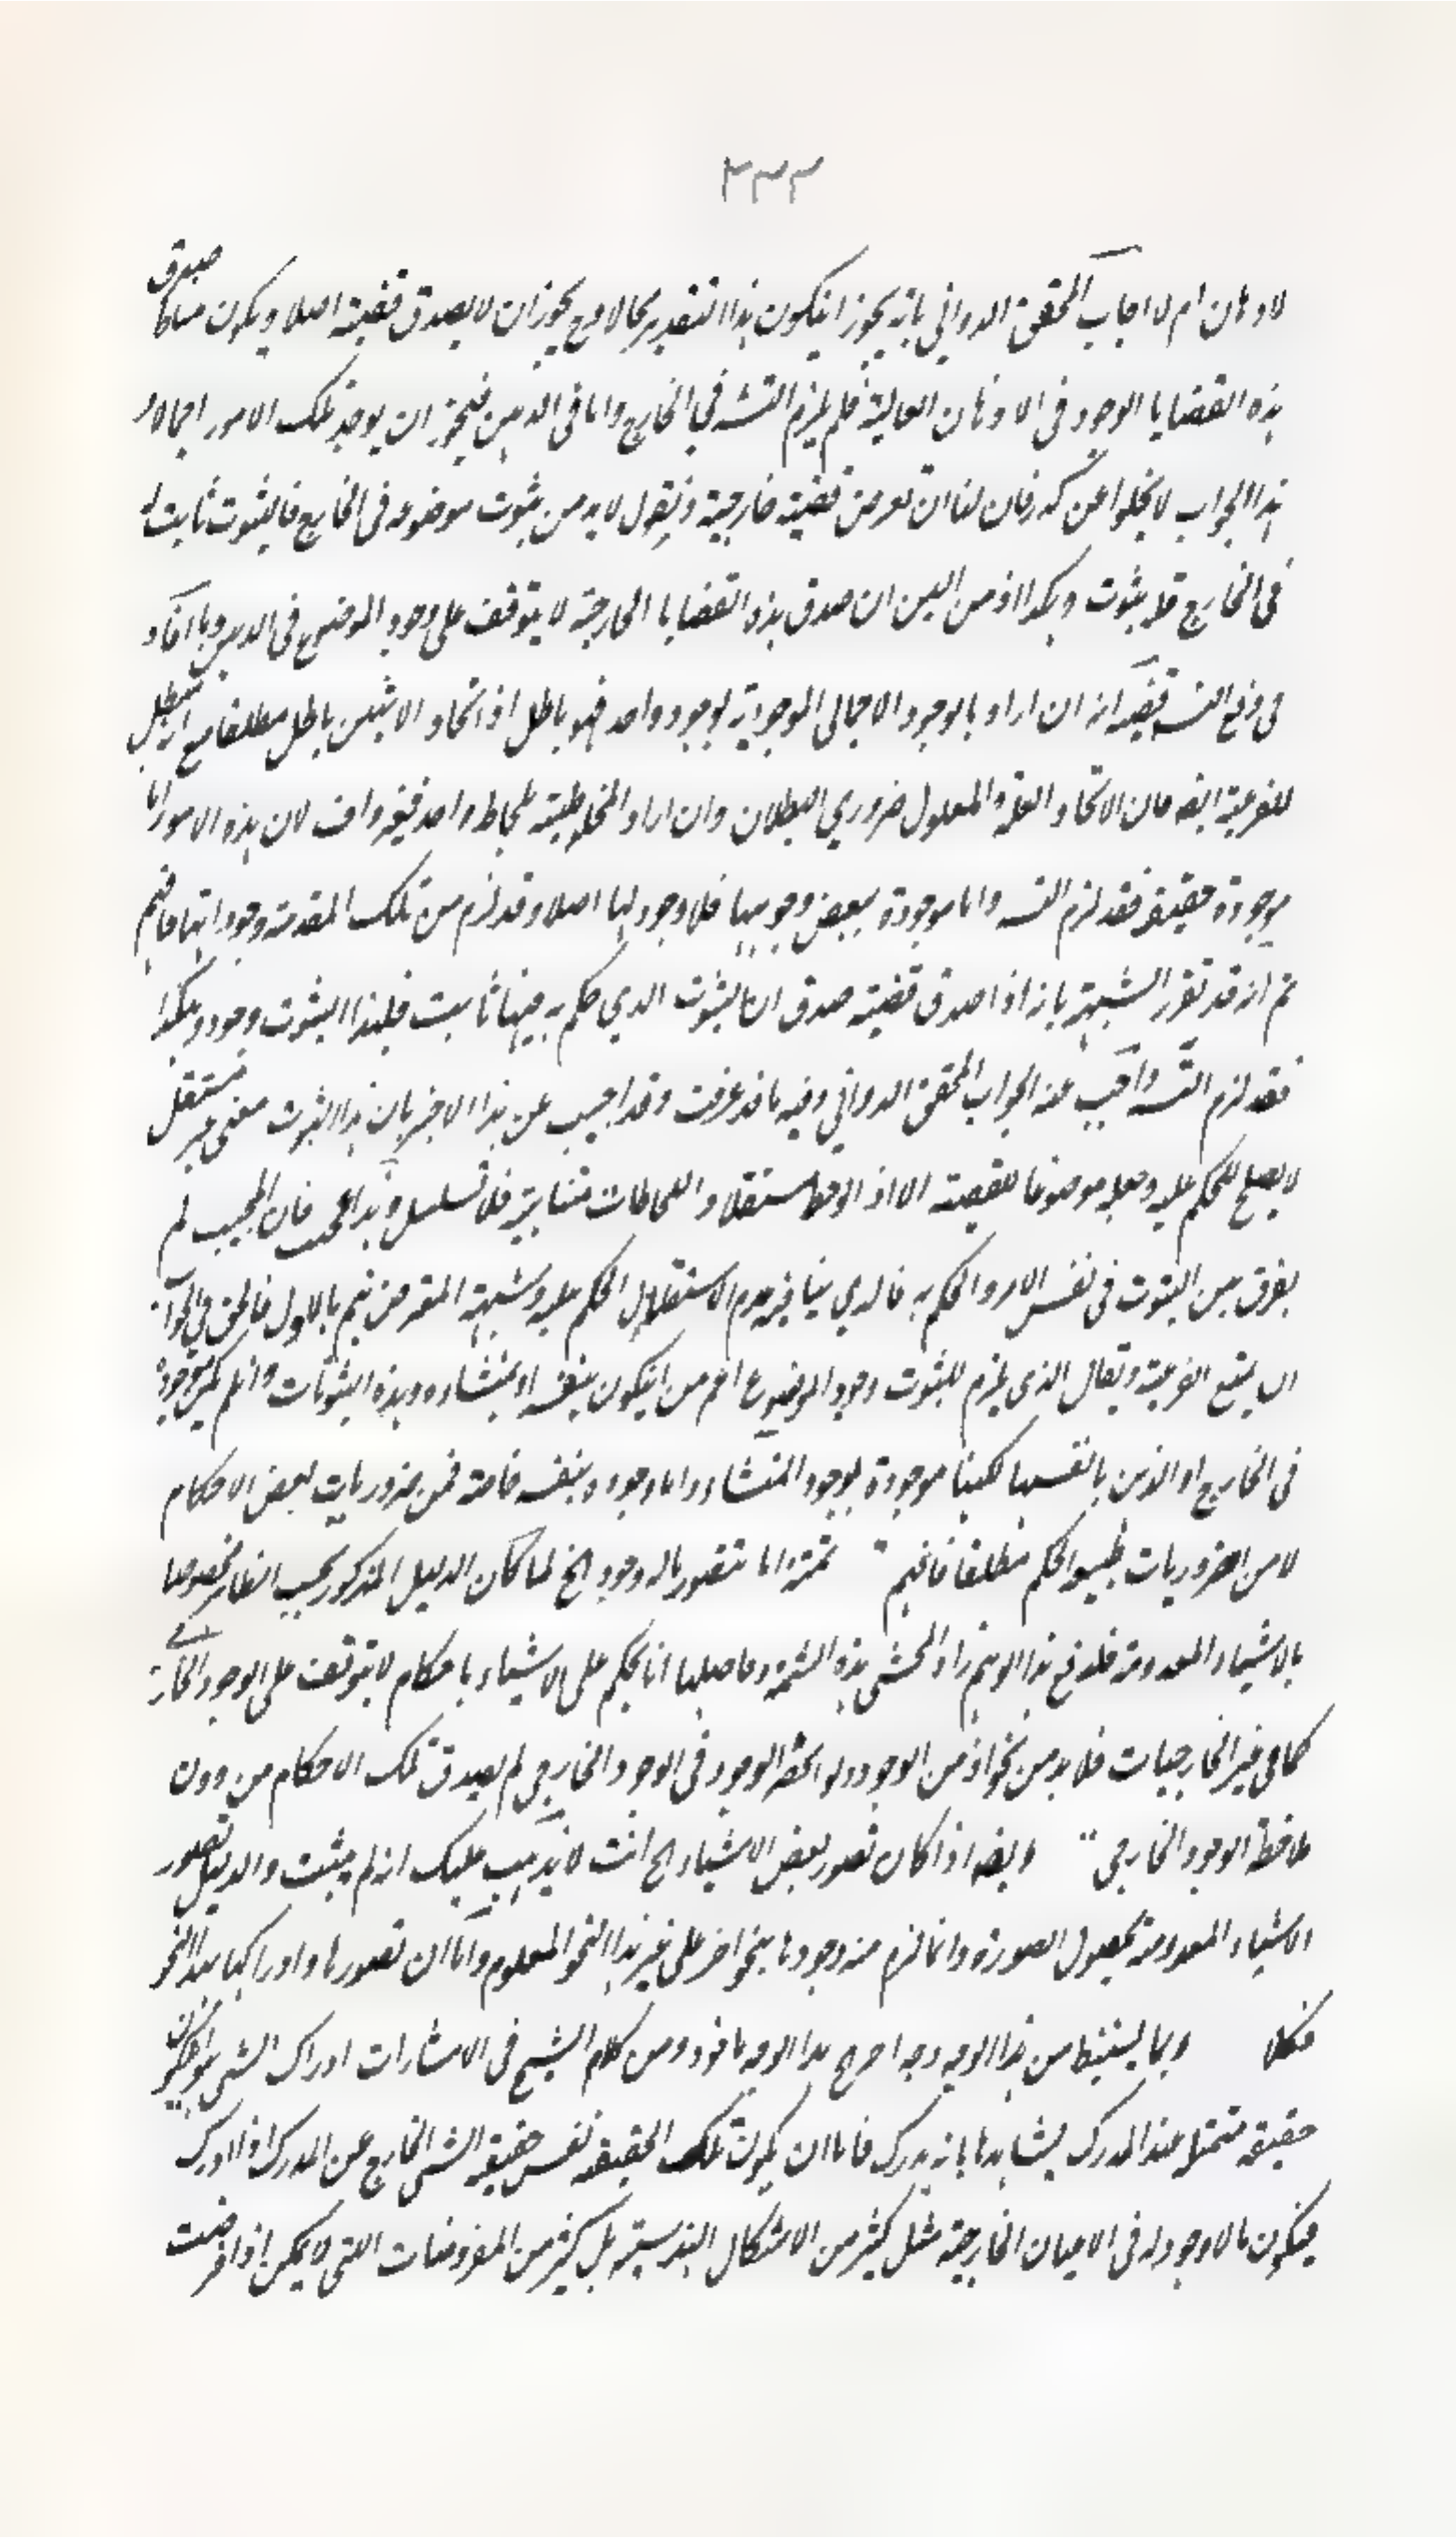 ٣٣٢
لاذهان ام لا اجاب المحقق الدواني بانه يجوز ان يكون هذا التقدير محالا وح يجوز ان لا يصدق قضية اصلا ويكون صدق
هذه القضايا الوجود فى الاذهان العالية فلم يلزم التسـ في الخارج واما فى الذهن فيجوز ان يوجد تلك الامور اجمالا و
هذا الجواب لا يخلوا عن كدر فان لنا ان نفرض قضية خارجية ونقول لابد من ثبوت موضوعه فى الخارج فالثبوت ثابت
فى الخارج فله ثبوت وهكذا اذ من البين ان صدق هذه القضايا الخارجية لا يتوقف على وجود الموضوع فى الذهن وما افاد
فى دفع التسـ ففيه انه ان اراد بالوجود الاجمالى الموجودية بوجود واحد فهو باطل اذ اتحاد الاثنين باطل مطلقا مع انه مبطل
للفرعية ايضه فان الاتحاد العلة والمعلول ضروري البطلان وان اراد الملحوظية بلحاظ واحد فغير واف لان هذه الامور اما
موجودة حقيقة فقد لزم التسـ واما موجودة ببعض وجوهها فلا وجود لها اصلا وقد لزم من تلك المقدمة وجوداتها فافهم
ثم انه قد تقرر الشبهة بانه اذا صدق قضية صدق ان الثبوت الذي حكم به فيها ثابت فلهذا الثبوت وجود وهكذا
فقد لزم التسـ واجيب عنه الجواب المحقق الدواني وفيه ما قد عرفت وقد اجيب عن هذا الاخير بان هذا الثبوت معنى غير مستقل
لا يصلح للحكم عليه وجعله موضوعا للقضية الا اذا لوحظ مستقلا واللحاظات متناهية فلا تسلسل وهذا عجيب فان المجيب لم
يفرق بين الثبوت فى نفس الامر والحكم به فالذي ينافيه عدم الاستقلال الحكم عليه وشبهة المعترض تتم بالاول فالحق في الجواب
ان يتبع الفرعية ويقال الذى يلزم للثبوت وجود الموضوع اعم من ان يكون بنفسه او بمنشاءه وهذه الثبوتات وان لم يكن موجودة
فى الخارج او الذهن بانفسها لكنها موجودة بوجود المنشاء واما وجوده بنفسه خاصة فمن ضروريات بعض الاحكام
لا من ضروريات طبيعة الحكم مطلقا فافهم قوله وانا نتصور ما لا وجود الخ لما كان الدليل المذكور بحسب الظاهر مخصوصا
بالاشياء المعدومة فلدفع هذا الوهم زاد المحشى هذه التتمة وحاصلها انا نحكم على الاشياء باحكام لا يتوقف على الوجود الخارجى
كما في غير الخارجيات فلا بد من نحو اخر من الوجود ولو انحصر الوجود فى الوجود الخارجى لم يصدق تلك الاحكام من دون
ملاحظة الوجود الخارجى وايضه اذا كان تصور بعض الاشياء الخ انت لا يذهب عليك انه لم يثبت والدليل تصور
الاشياء المعدومة بحصول الصورة وانما لزم منه وجودها بنحو اخر على غير هذا النحو المعلوم واما ان تصورها وادراكها بهذا النحو
فكلا وبما يستنبط من هذا الوجه وجه اخرج هذا الوجه ماخوذ من كلام الشيخ فى الاشارات ادراك الشى هو ان يكون
حقيقة متمثلة عند المدرك يشاهدها بانه يدرك فاما ان يكون تلك الحقيقة نفس حقيقة الشى الخارج عن المدرك اذا ادرك
فيكون ما لا وجود له فى الاعيان الخارجية مثل كثير من الاشكال الهندسية بل كثير من المفروضات التى لا يمكن اذا فرضت